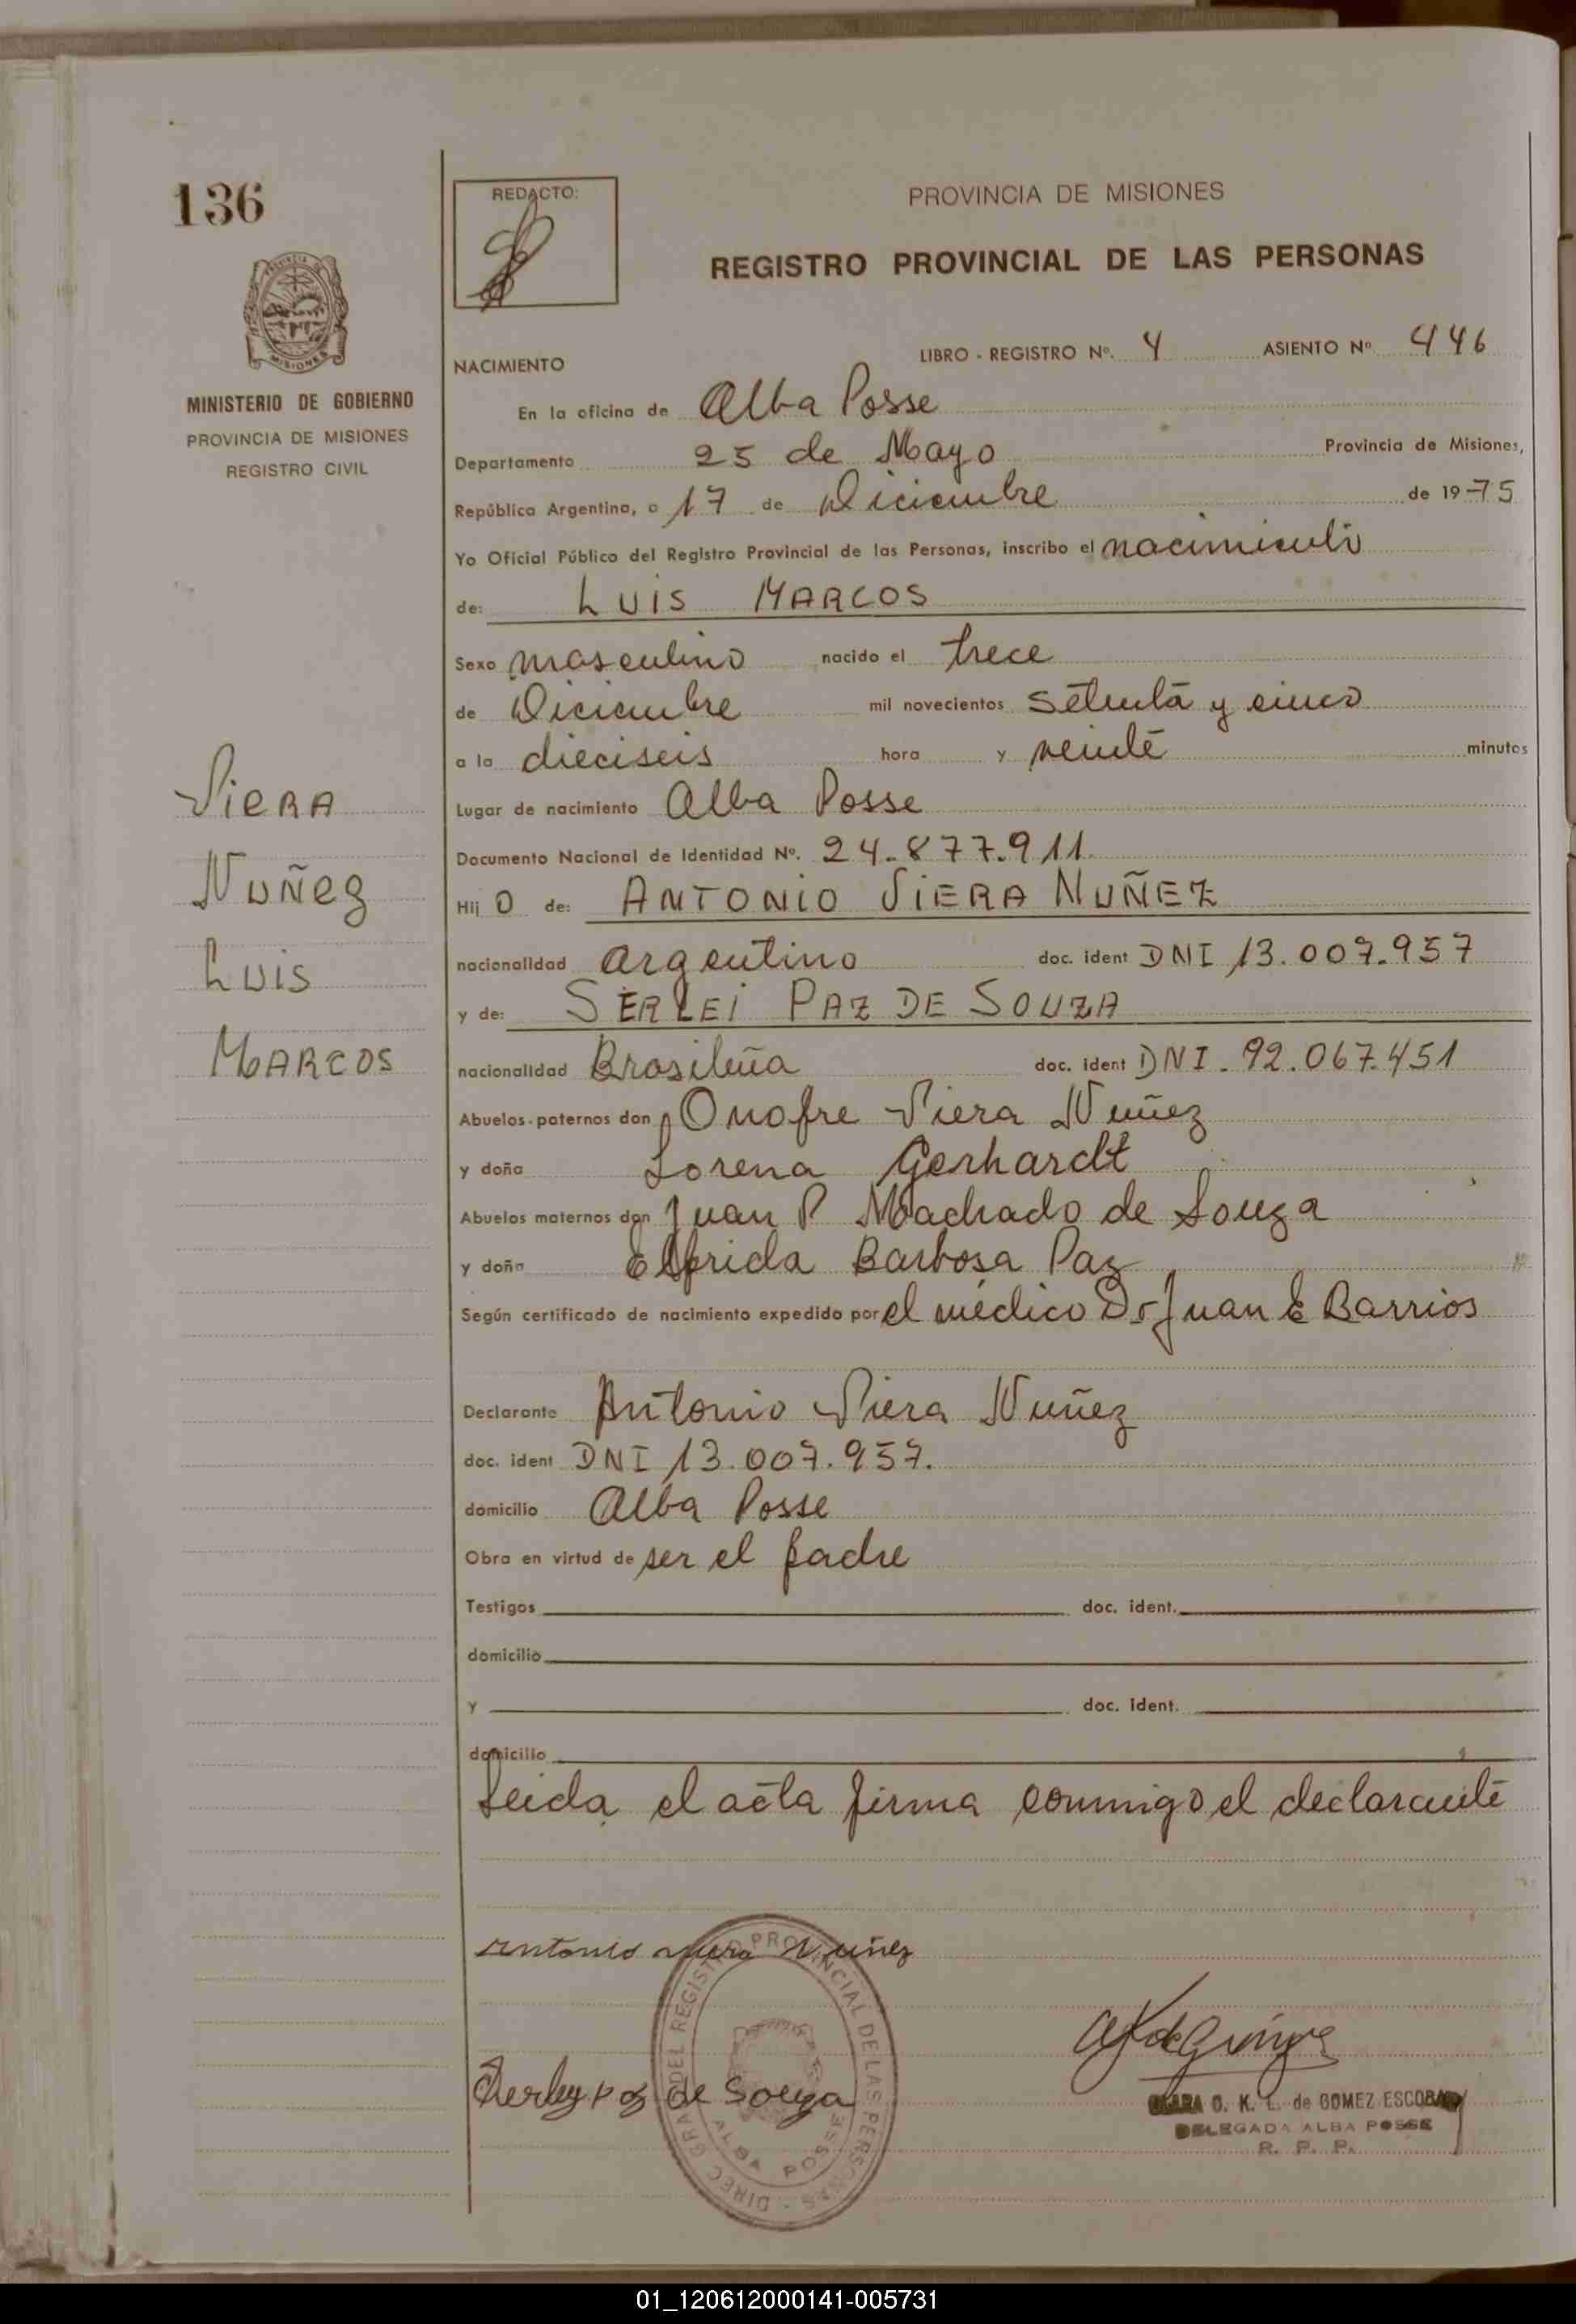 136
REDACTO:
PROVINCIA DE MISIONES
REGISTRO PROVINCIAL DE LAS PERSONAS
PROVINCIA DE
MISIONES
MINISTERIO DE GOBIERNO
PROVINCIA DE MISIONES
REGISTRO CIVIL
LIBRO - REGISTRO Nº. 4 ASIENTO Nº 446
NACIMIENTO
En la oficina de Alba Posse
Departamento 25 de Mayo Provincia de Misiones,
República Argentina, a 17 de Diciembre de 1975
Yo Oficial Público del Registro Provincial de las Personas, inscribo el nacimiento
de: LUIS MARCOS
Sexo masculino nacido el trece
de Diciembre mil novecientos setenta y cinco
a la dieciseis hora y veinte minutos
Lugar de nacimiento Alba Posse
Documento Nacional de Identidad Nº. 24.877.911.
Hij O de: ANTONIO VIERA NUÑEZ
nacionalidad argentino doc. ident DNI 13.007.957
y de: SERLEI PAZ DE SOUZA
nacionalidad Brasileña doc. ident DNI. 92.067.451
Abuelos paternos don Onofre Viera Nuñez
y doña Lorena Gerhardt
Abuelos maternos don Juan P Machado de Souza
y doña Elfrida Barbosa Paz
Según certificado de nacimiento expedido por el médico Dr Juan E Barrios
Declarante Antonio Viera Nuñez
doc. ident DNI 13.007.957.
domicilio Alba Posse
Obra en virtud de ser el padre
Testigos doc. ident.
domicilio
y doc. ident.
domicilio
Leida el acta firma conmigo el declarante
VIERA
NUÑEZ
LUIS
MARCOS
Antonio Viera Nuñez
paz de Souza
DIREC GRAL DEL REGISTRO PROVINCIAL DE LAS PERSONAS
ALBA POSSE
O. K. L. de GOMEZ ESCOBAR
DELEGADA ALBA POSSE
R. P. P.
01_120612000141-005731